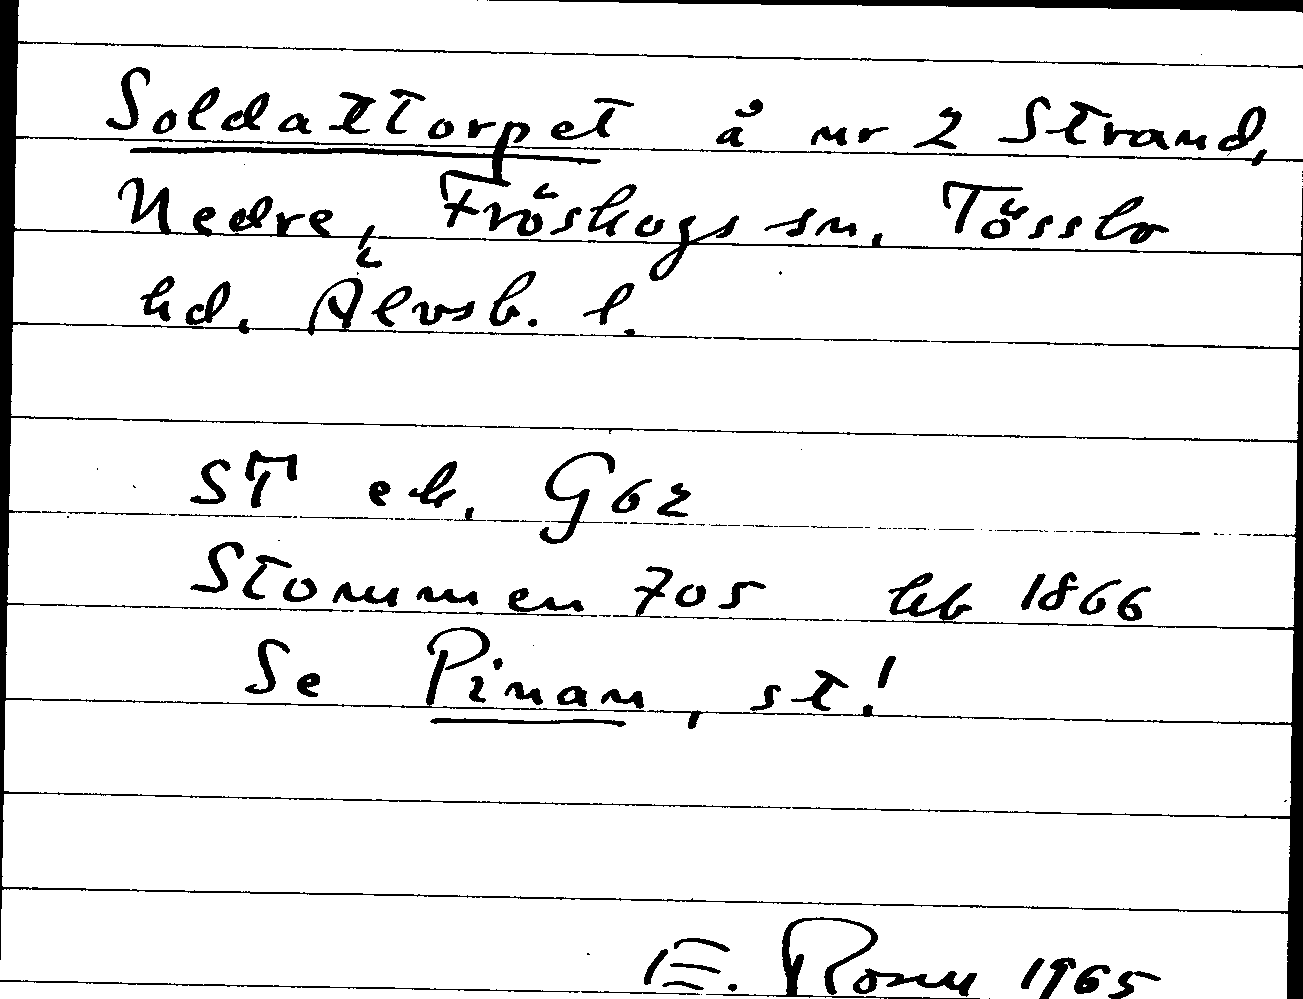 Soldattorpet å nr 2 Strand,
Nedre, Fröskogs sn. Tössbo
hd. Älvsb. l.
ST ek. G62
Stommen 705 hfb 1866
Se Pinan, st!
E. Rosell 1965